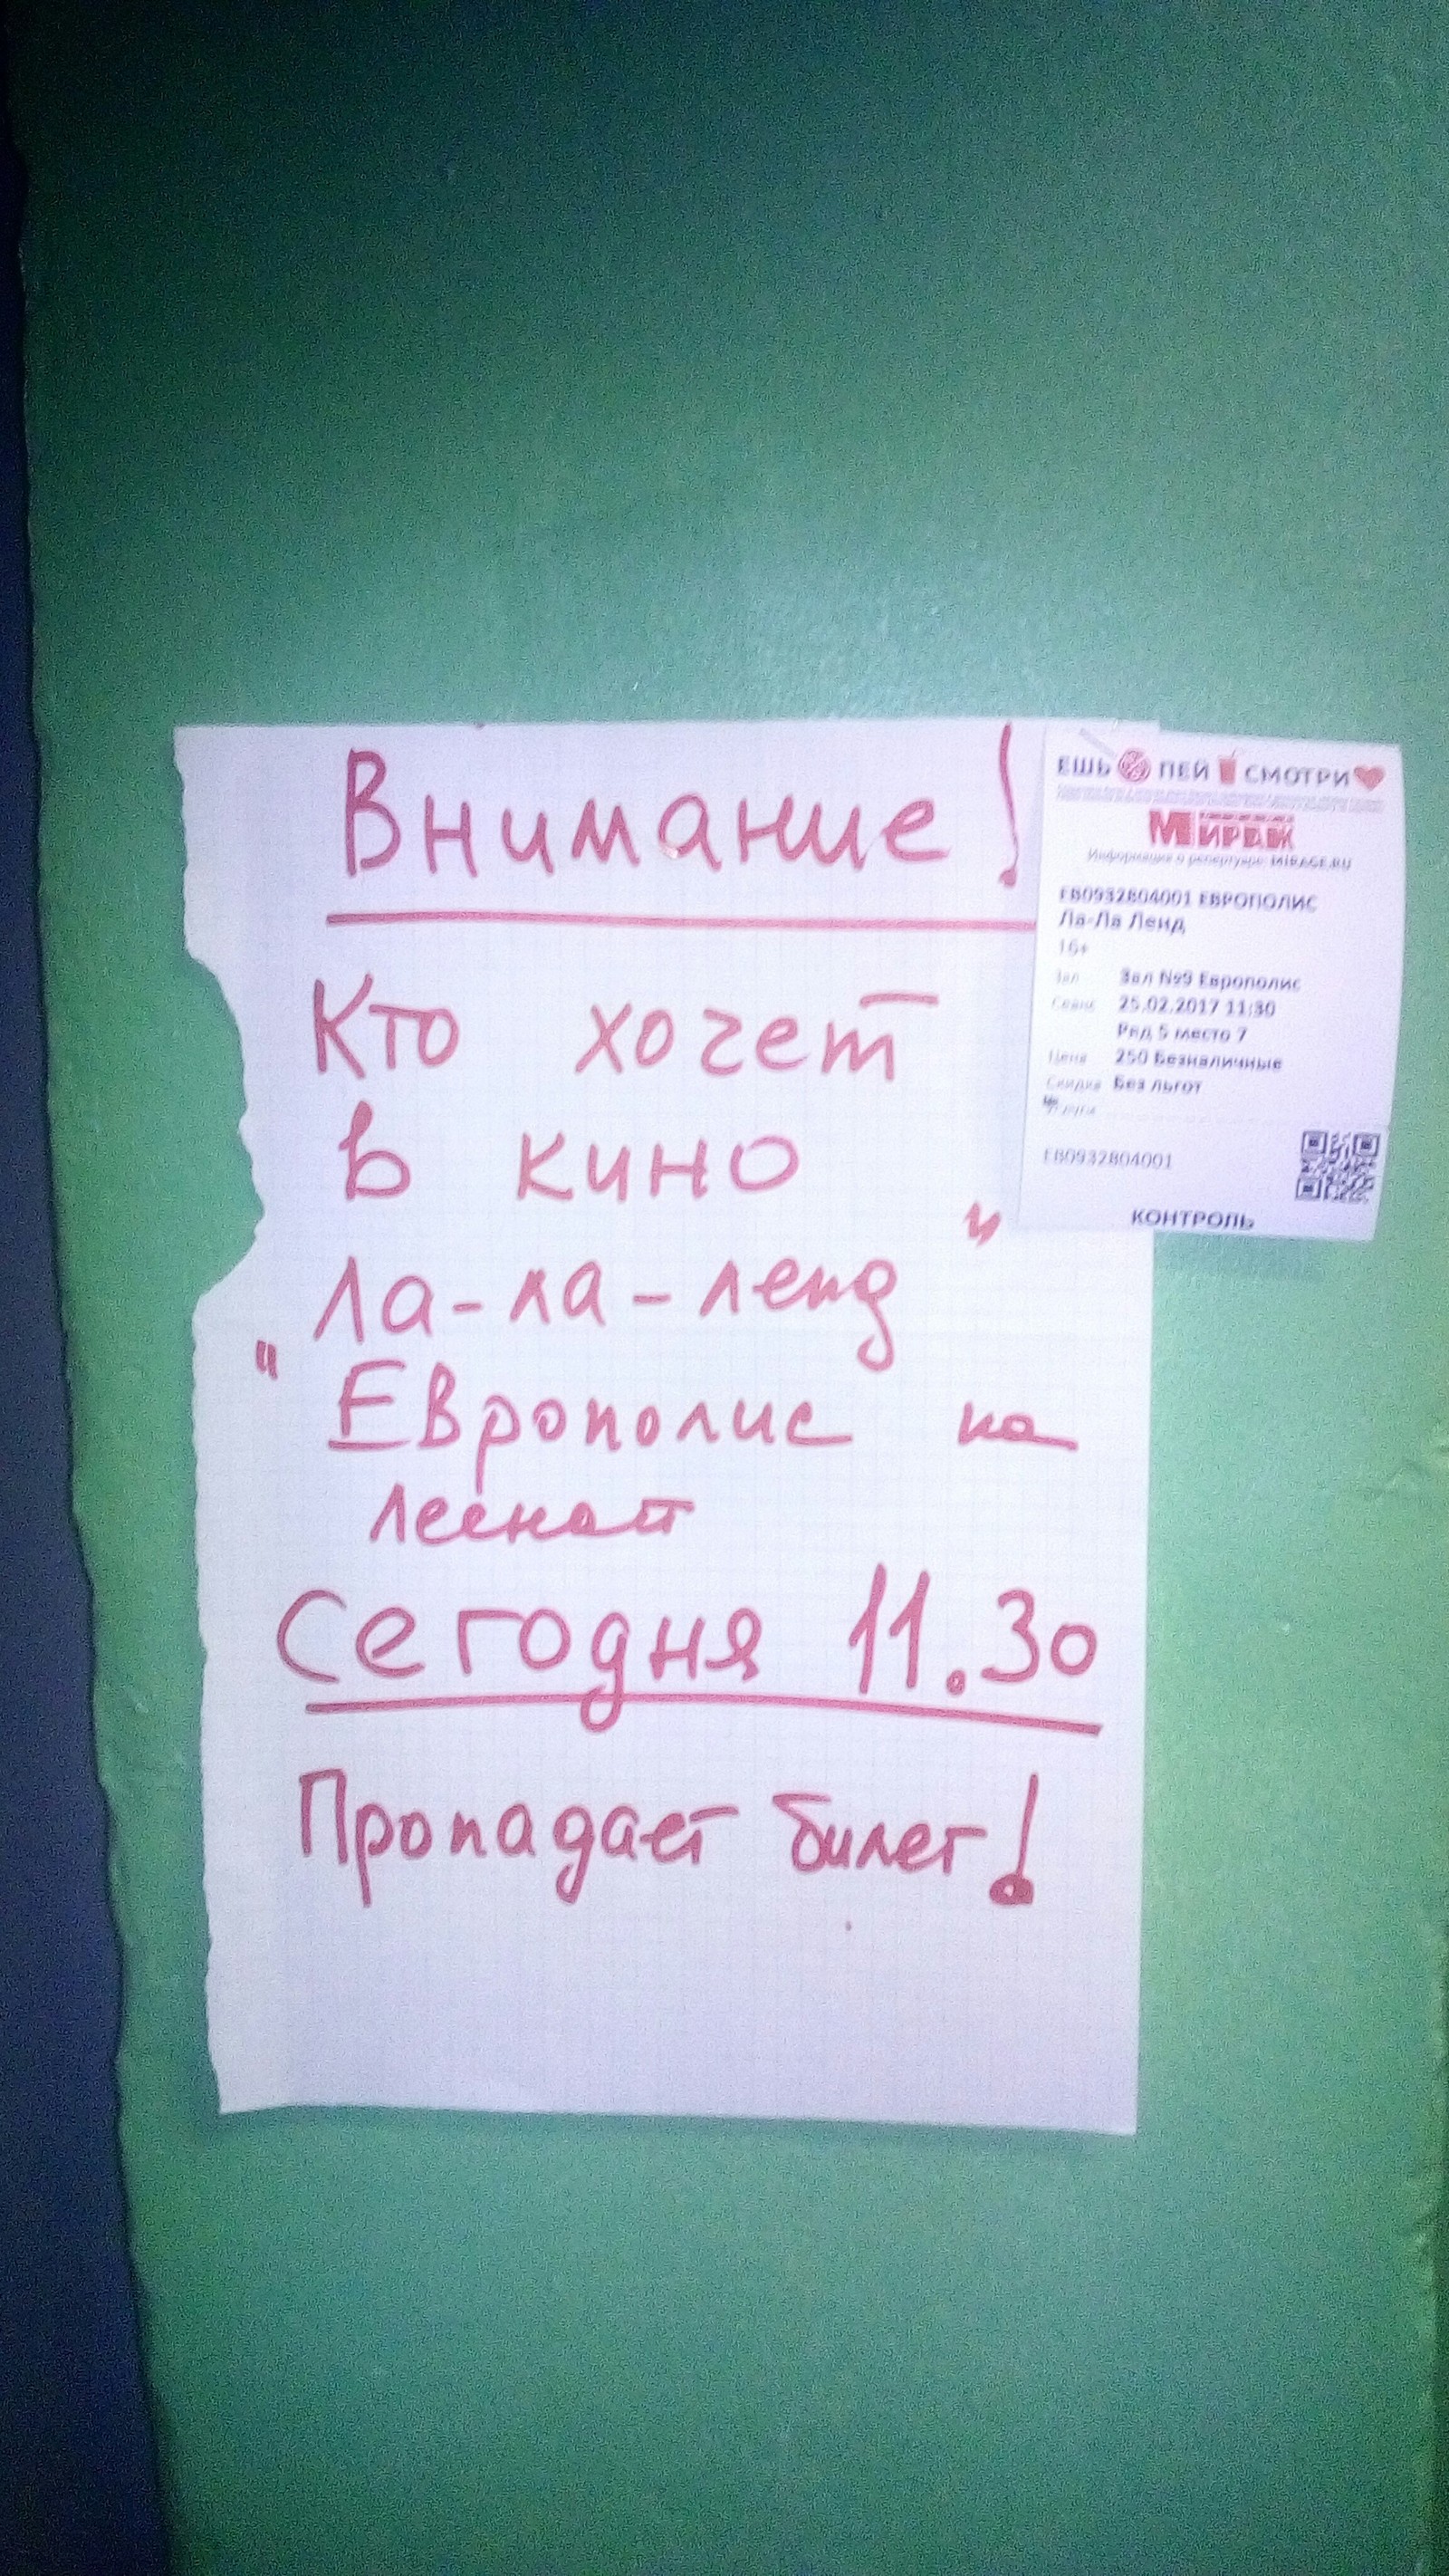 Внимание!
Кто хочет
в кино
ла-ла-ленд"
"Европолис на
лесной
Сегодня 11.30
Пропадает билет!
ЕШЬ ПЕЙ СМОТРИ
МИРАЖ
Информация о репертуаре MIRAGE.RU
ЕВ0932804001 ЕВРОПОЛИС
Ла-Ла Ленд
16+
Зал Зал №9 Европолис
Сеанс 25.02.2017 11:30
Ряд 5 место 7
Цена 250 Безналичные
Скидка Без льгот
ЕВ0932804001
КОНТРОЛЬ